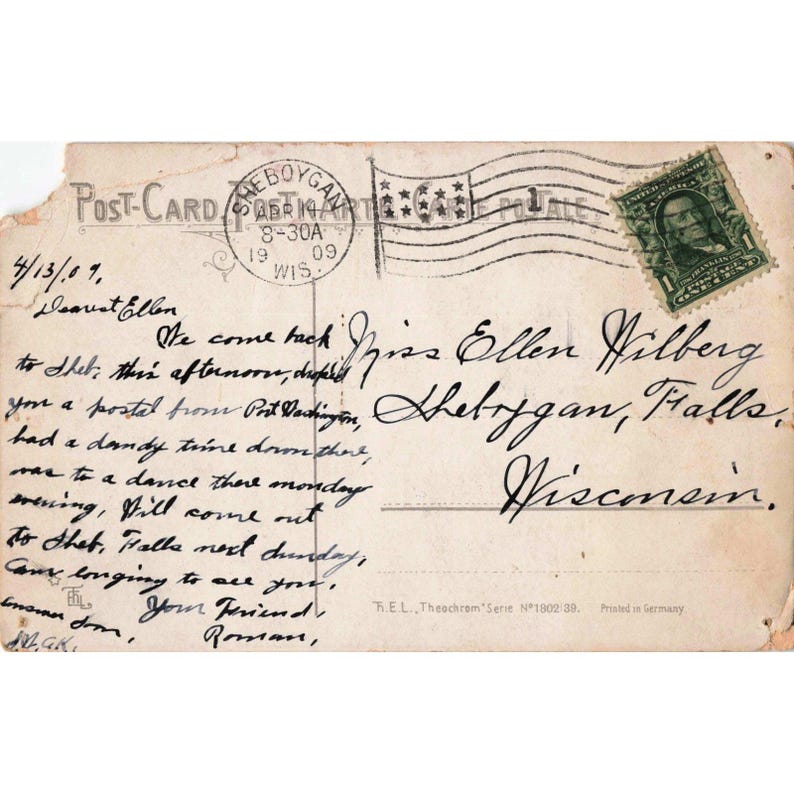 POST-CARD. POSTKARTE CARTE POSTALE.
SHEBOYGAN
APR 14
8-30A
19 09
WIS.
1
UNITED STATES OF
AMERICA
FRANKLIN
1 1
ONE CENT
4/13/.09.
Dearest Ellen
We come back
to Sheb. this afternoon, droped
you a postal from Port Washington,
had a dandy time down there,
was to a dance there monday
evening, Will come out
to Sheb. Falls next sunday,
am longing to see you.
Your Friend,
Roman,
answer soon,
Miss Ellen Wilberg
Sheboygan, Falls,
Wisconsin.
T.H.E.L. „Theochrom" Serie Nº1802/39. Printed in Germany